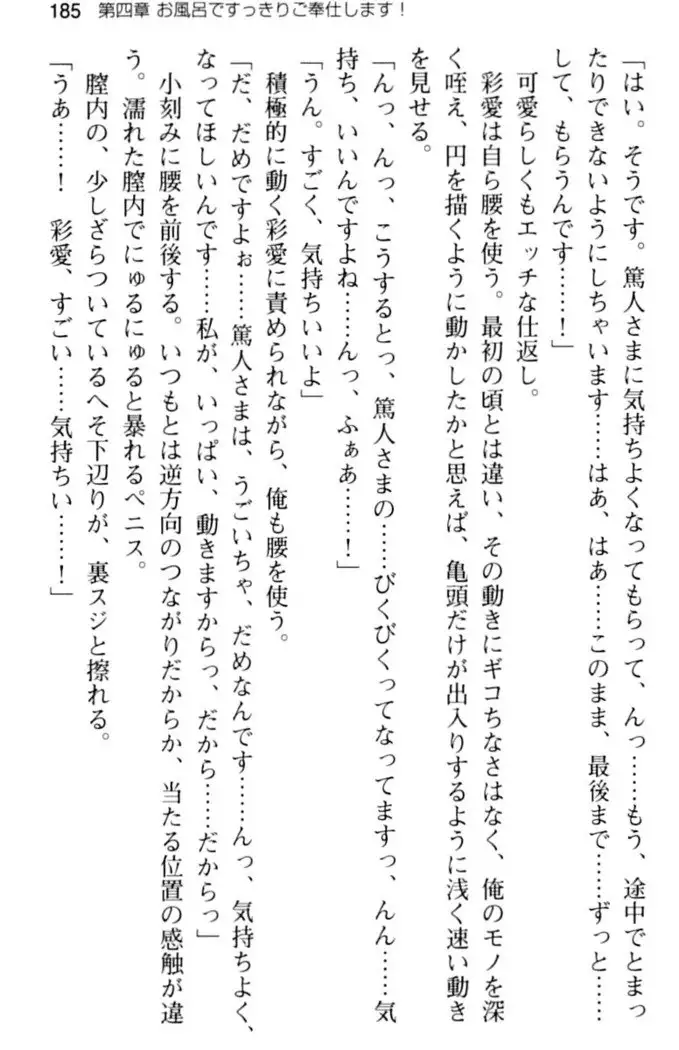 185 第四章 お風呂ですっきりご奉仕します！
「はい。そうです。篤人さまに気持ちよくなってもらって、んっ……もう、途中でとまっ
たりできないようにしちゃいます……はあ、はあ……このまま、最後まで……ずっと……
して、もらうんです……！」
可愛らしくもエッチな仕返し。
彩愛は自ら腰を使う。最初の頃とは違い、その動きにギコちなさはなく、俺のモノを深
く咥え、円を描くように動かしたかと思えば、亀頭だけが出入りするように浅く速い動き
を見せる。
「んっ、んっ、こうするとっ、篤人さまの……びくびくってなってますっ、んん……気
持ち、いいんですよね……んっ、ふぁあ……！」
「うん。すごく、気持ちいいよ」
積極的に動く彩愛に責められながら、俺も腰を使う。
「だ、だめですよぉ……篤人さまは、うごいちゃ、だめなんです……んっ、気持ちよく、
なってほしいんです……私が、いっぱい、動きますからっ、だから……だからっ」
小刻みに腰を前後する。いつもとは逆方向のつながりだからか、当たる位置の感触が違
う。濡れた膣内でにゅるにゅると暴れるペニス。
膣内の、少しざらついているへそ下辺りが、裏スジと擦れる。
「うぁ……！　彩愛、すごい……気持ちい……！」